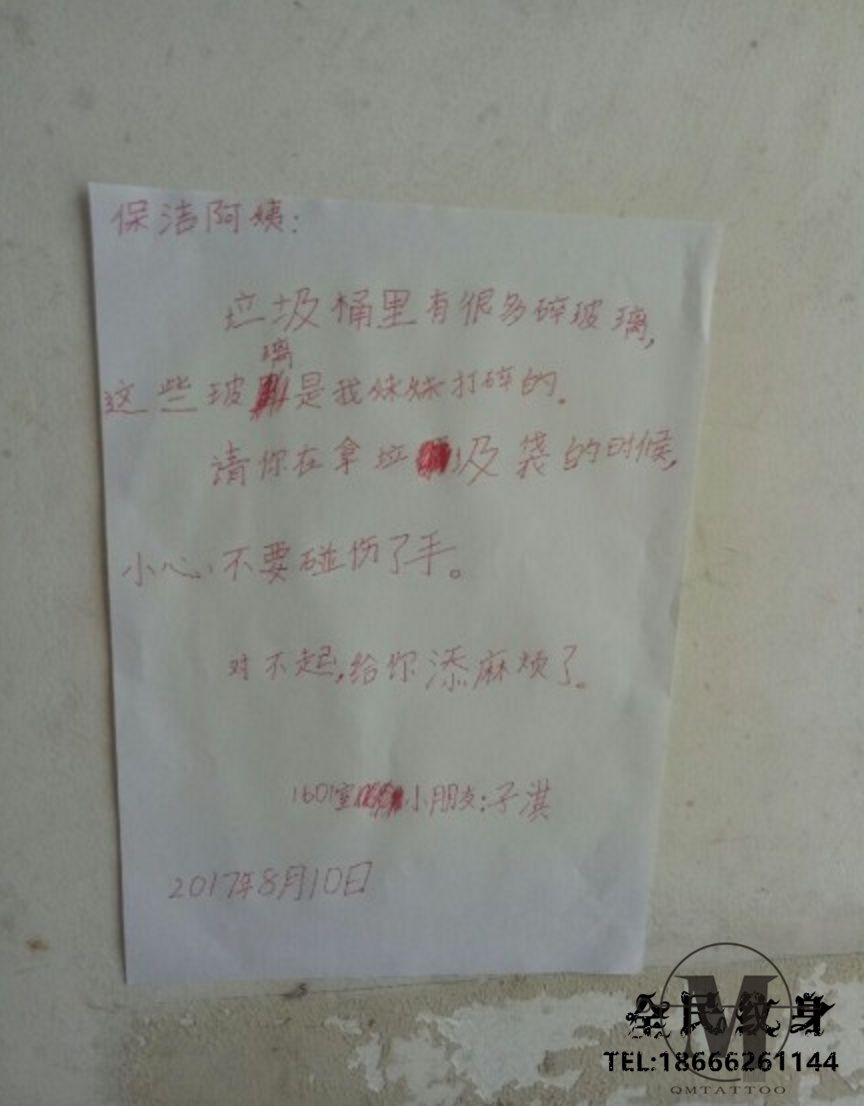 保洁阿姨:
垃圾桶里有很多碎玻璃,
璃
这些玻是我妹妹打碎的。
请你在拿垃圾袋的时候,
小心,不要碰伤了手。
对不起,给你添麻烦了。
1601室小朋友:子淇
2017年8月10日
M
全民纹身
TEL:18666261144
QMTATTOO